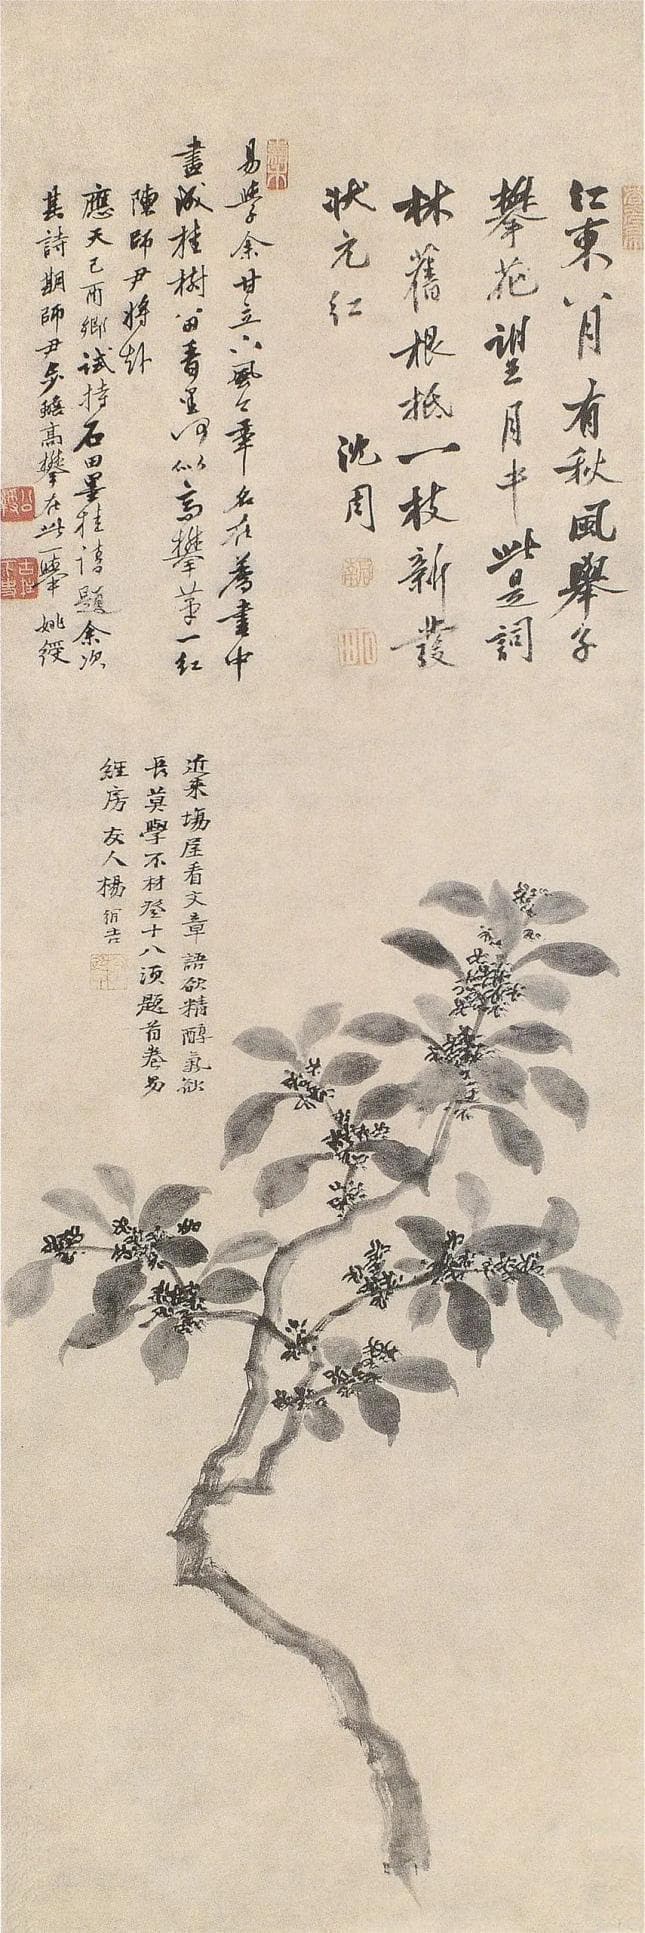 江東八月有秋風舉子
攀花望月中此是詞
林舊根柢一枝新發
狀元紅
沈周
易學余甘立下風今年名在薦書中
畫成桂樹留香里何似高攀第一紅
陳師尹將赴
應天己酉鄉試持石田墨桂請題余次
其詩期師尹步蟾高攀在此一舉 姚綬
近來場屋看文章語欲精醇氣欲
長莫學不材
十八
題首卷易
經房 友人楊